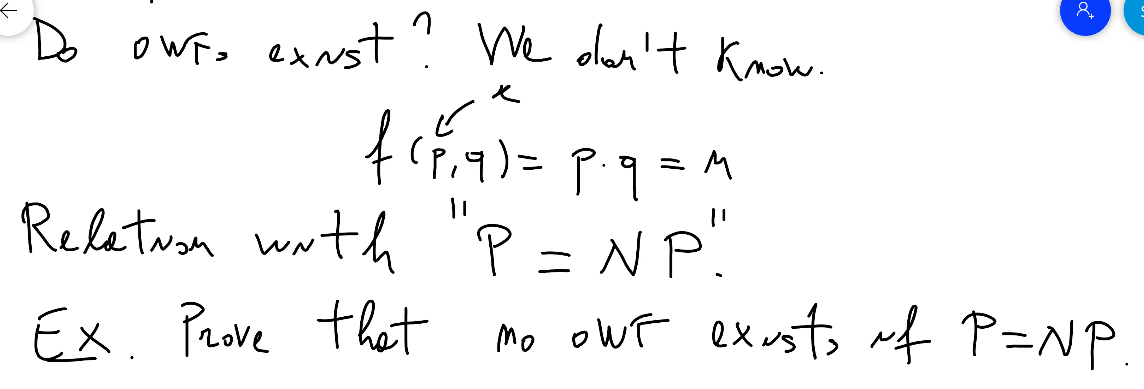 Do OWFs exist? We don't know.
x
f(p,q) = p·q = n
Relation with "P = NP".
Ex. Prove that no OWF exists if P=NP.